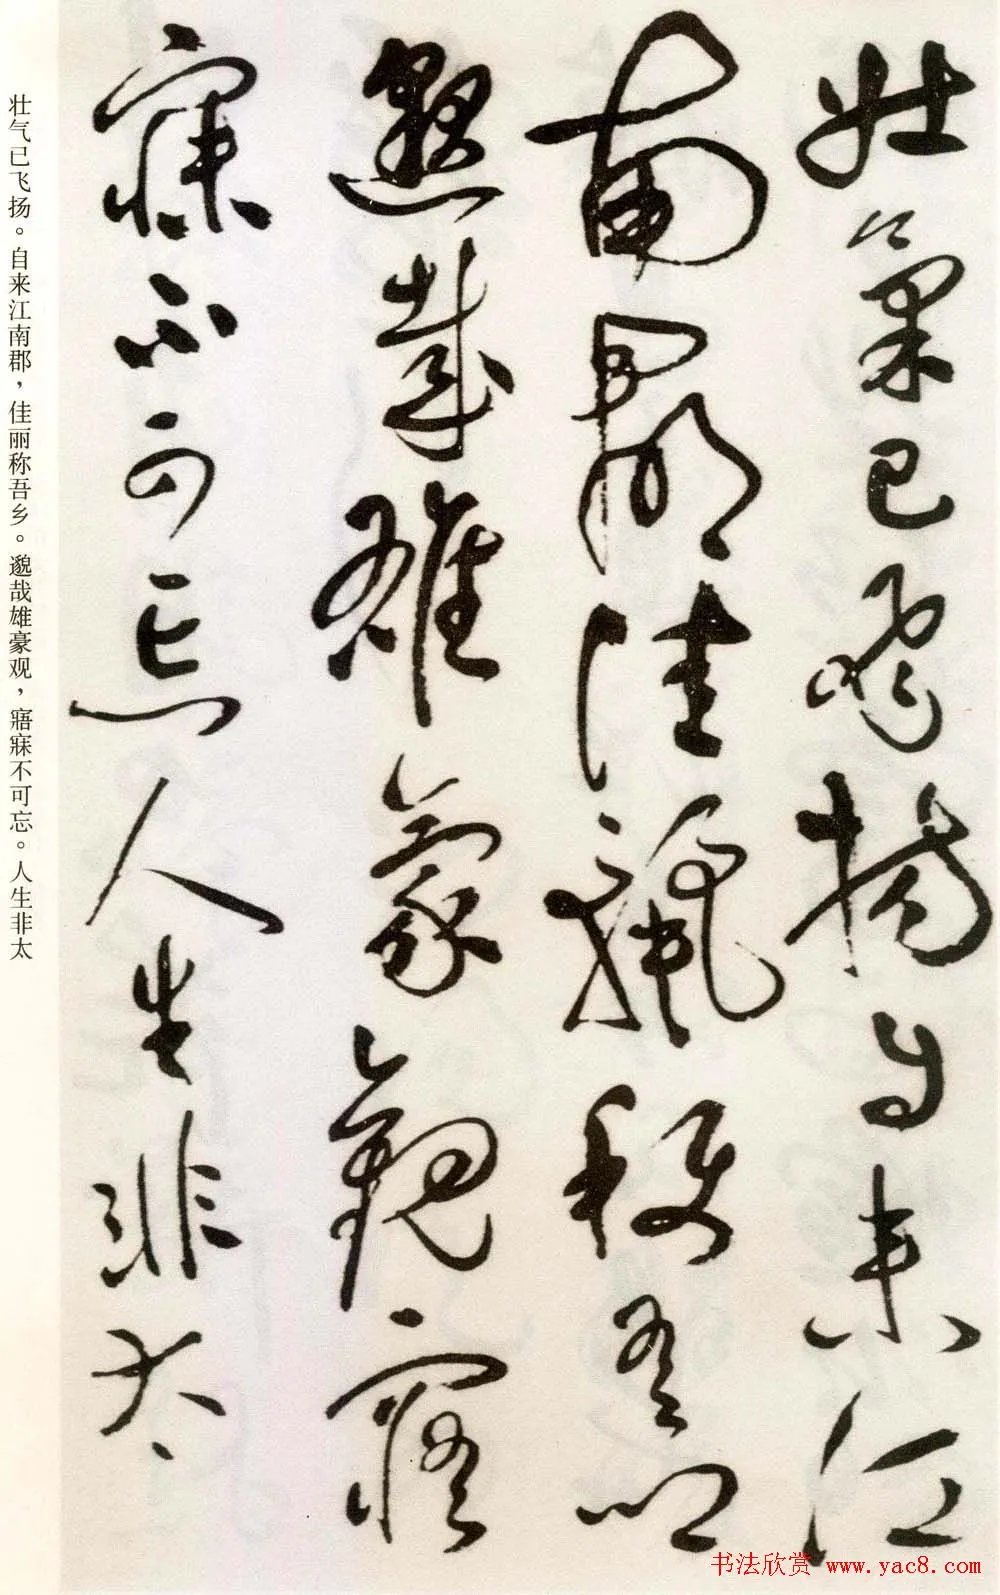 壮氣已飛揚自来江
南郡佳麗称吾鄉
邈哉雄豪觀寤
寐不可忘人生非太
壮气已飞扬。自来江南郡，佳丽称吾乡。邈哉雄豪观，寤寐不可忘。人生非太
书法欣赏 www.yac8.com